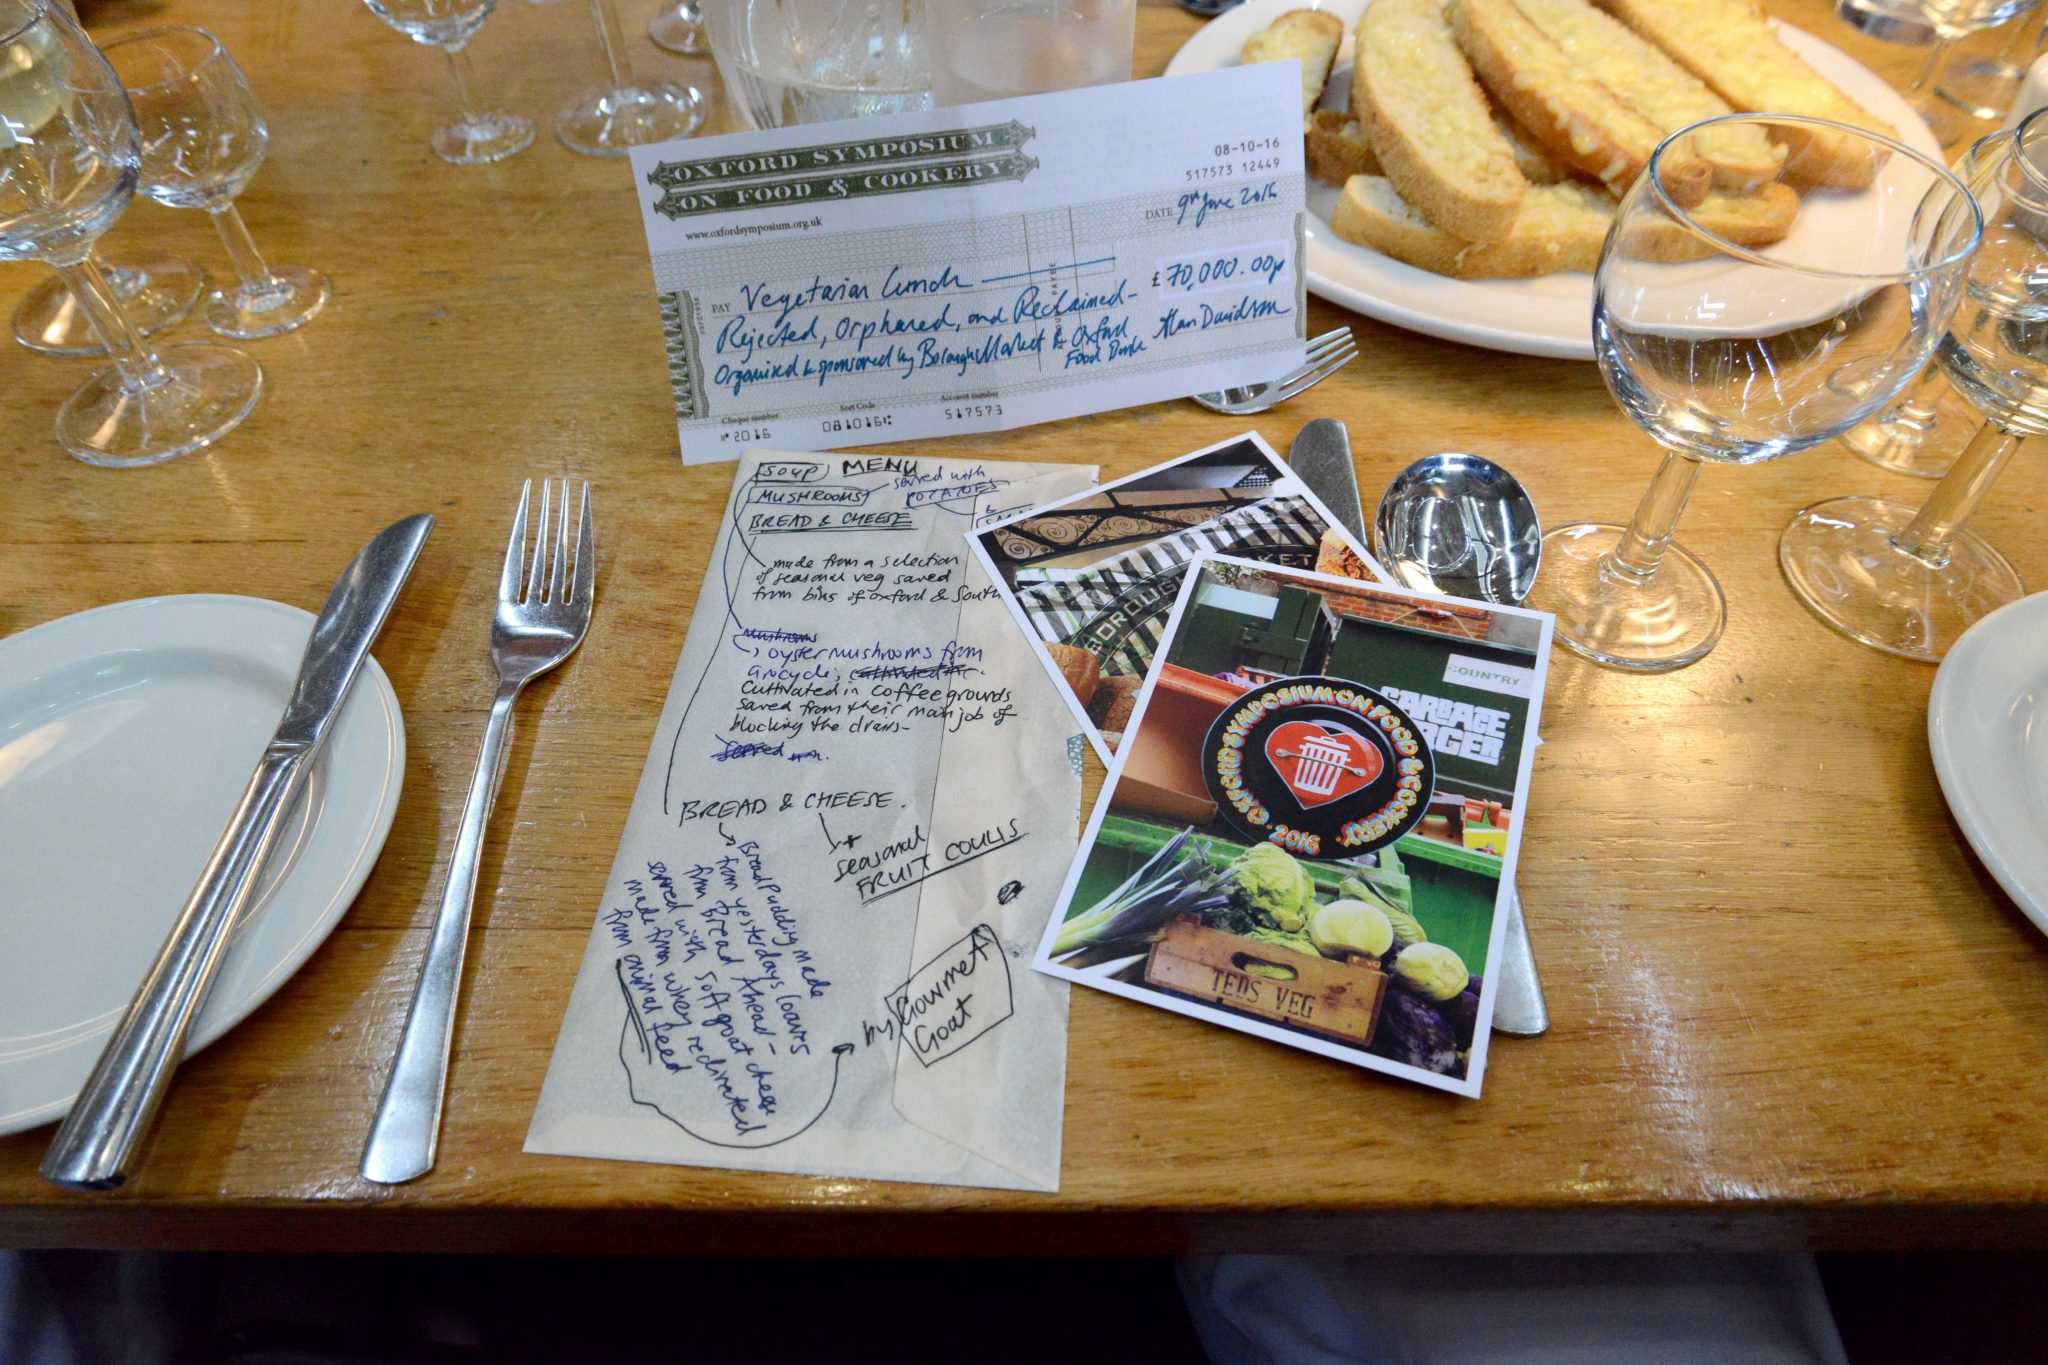 OXFORD SYMPOSIUM
ON FOOD & COOKERY
www.oxfordsymposium.org.uk
08-10-16
517573 12449
DATE 9th June 2016
PAY Vegetarian Lunch
£ 70,000.00p
Rejected, Orphaned, and Reclaimed-
Organised & sponsored by Borough Market & Oxford
Food Bank
Alan Davidson
PAYEE
Cheque number
Sort Code
Account number
2016
081016
517573
SOUP MENU
MUSHROOMS served with
POTATOES
&
BREAD & CHEESE
made from a selection
of seasonal veg saved
from bins of Oxford & South
Mushrooms
oyster mushrooms from
Grocycle; cultivated in
Cultivated in coffee grounds
saved from their main job of
blocking the drains-
Served
BREAD & CHEESE.
+
seasonal
FRUIT COULIS
Bread Pudding made
from yesterdays loaves
from Bread Ahead-
served with soft goat cheese
made from whey redirected
from animal feed
by Gourmet
Goat
BOROUGH
MARKET
COUNTRY
GARBAGE
OXFORD SYMPOSIUM ON FOOD & COOKERY · 2016 ·
TEDS VEG